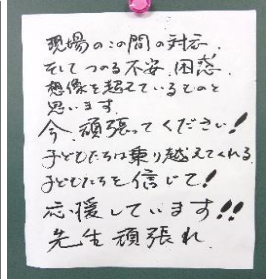 現場のこの間の対応、
そしてつのる不安、困惑、
想像を超えているものと
思います。
今、頑張ってください!
子どもたちは乗り越えてくれる
子どもたちを信じて!
応援しています!!
先生頑張れ